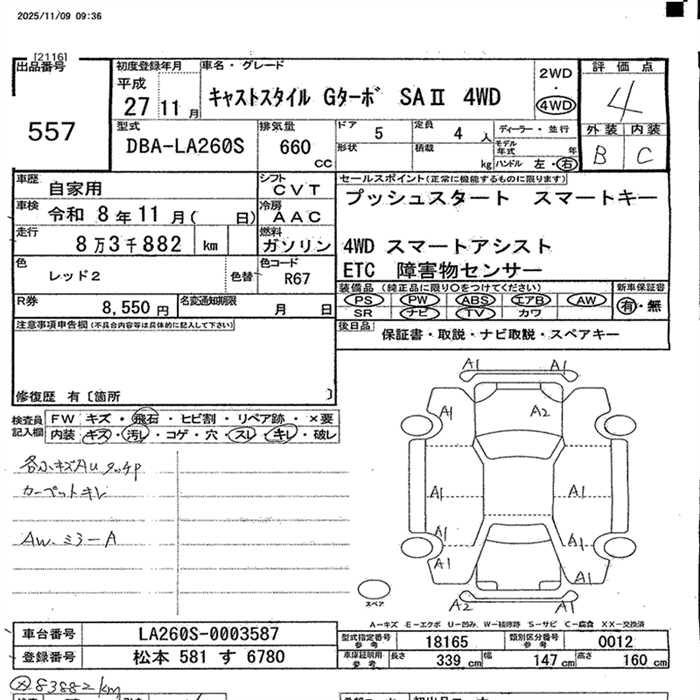 2025/11/09 09:36
[2116]
出品番号
557
初度登録年月
平成
27 11 月
車名・グレード
キャストスタイル Gターボ SAⅡ 4WD
2WD
・
4WD
評価点
4
外装 内装
B C
型式
DBA-LA260S
排気量
660
CC
ドア 5
定員 4 人
ディーラー・並行
形状
積載
kg
モデル年式 年
ハンドル 左・右
車歴 自家用
シフト CVT
車検 令和 8 年 11 月 ( 日)
冷房 AAC
走行 8 万 3 千 882 km
燃料 ガソリン
色 レッド2
色替
色コード R67
R券 8,550 円
名変通知期限 月 日
セールスポイント(正常に機能するものに限ります)
プッシュスタート スマートキー
4WD スマートアシスト
ETC 障害物センサー
装備品 (純正品に限り○をつけてください)
PS PW ABS エアB AW
SR ナビ TV カワ
新車保証書
有・無
後日品 保証書・取説・ナビ取説・スペアキー
注意事項申告欄(不具合内容等は具体的に記入して下さい)
修復歴 有〔箇所 〕
検査員記入欄
FW キズ・飛石・ヒビ割・リペア跡・×要
内装 キズ・汚レ・コゲ・穴・スレ・キレ・破レ
各小キズAUタッチP
カーペットキレ
AW.ミラーA
A1 A1
A1 A2
A1 A1
A1 A1
A1 A1
A2 A1
スペア
A－キズ E－エクボ U－凹み、W－補修跡 S－サビ C－腐食 XX－交換済
車台番号 LA260S-0003587
登録番号 松本 581 す 6780
型式指定番号 参考 18165
類別区分番号 参考 0012
車庫証明用 参考 長さ 339 cm 幅 147 cm 高さ 160 cm
83882km